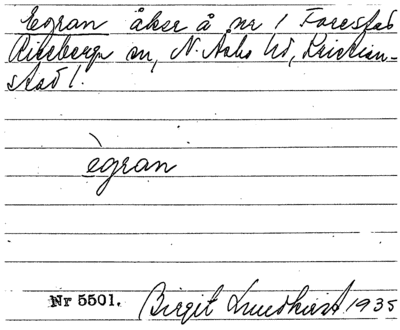 Egran åker å nr 1 Forestad
Riseberga sn, N. Åsbo hd, Kristian-
stad l.
ègran
Nr 5501. Birgit Lundkvist 1935